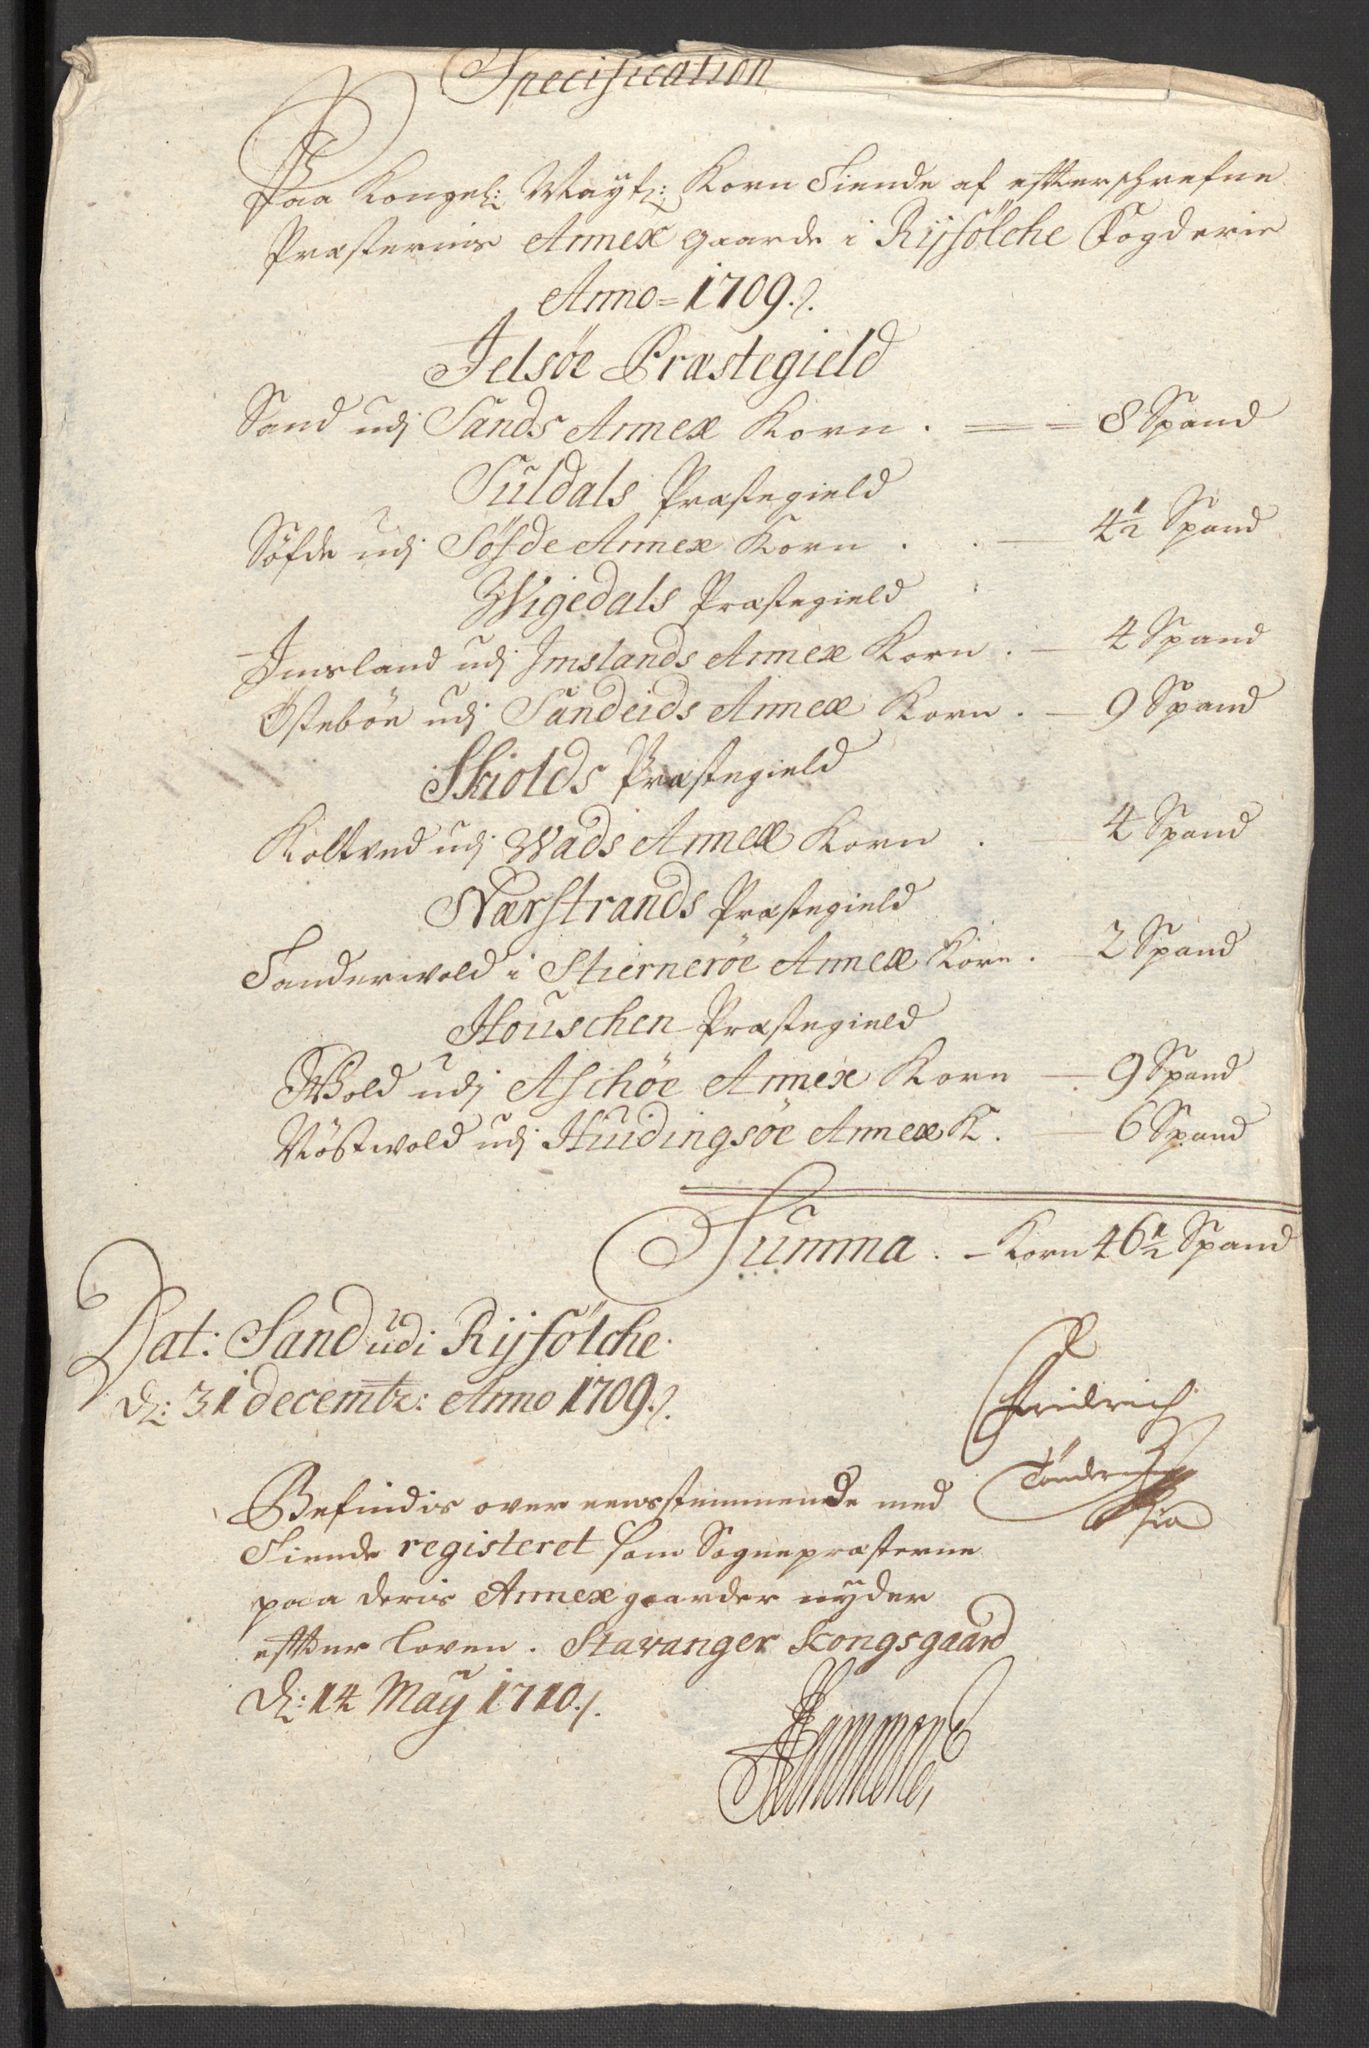 Specification
Paa Kongel: Mayts: Korn Tiende af effterschrefne
Præsternis Annex gaarde i Rijfölche Fogderie
Anno = 1709.
Jelsöe Præstegield
Sand udj Sands Annex Korn . == = 8 Spand
Suldals Præstegield
Söfde udj Söfde Annex Korn . . — 4½ Spand
Wigedals Præstegield
Imsland udj Imslands Annex Korn . — 4 Spand
Östeböe udj Sandeids Annex Korn . — 9 Spand
Skiolds Præstegield
Koltved udj Wads Annex Korn . — 4 Spand
Nærstrands Præstegield
Sanderwold i Stierneröe Annex Korn . — 2 Spand
Houschen Præstegield
Wold udj Aschöe Annex Korn — 9 Spand
Nöstwold udj Huidingsöe Annex K. — 6 Spand
Summa . – Korn 46½ Spand
Dat: Sand udi Rijfölche
d: 31 decembr: Anno 1709.
Fridrich
Befindis over eensstemmende med
Tiende registeret som Sognepræsterne
paa deris Annex gaarder nyder
effter loven . Stavanger Kongsgaard
d: 14 May 1710 .